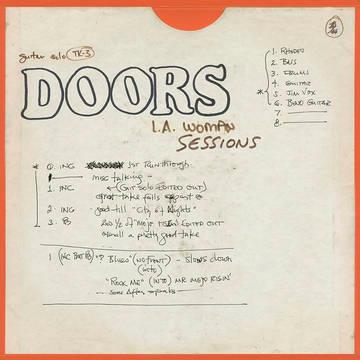 guitar solo TK-3
DOORS
L.A. WOMAN
SESSIONS
1. RHODES
2. BASS
3. DRUMS
4. GUITAR
5. JIM VOX
6. BEND GUITAR
7.
8.
* 0. INC 1st Run through.
misc talking -
1. INC (GUIT SOLO EDITED OUT)
great take falls apart
2. INC good till "City of Nights"
3. 2nd ½ of "mojo risin" EDITED OUT
overall a pretty good take
1 (INC ) "? Blues" (NO FRONT) - SLOWS DOWN
(into)
"ROCK ME" (INTO) MR MOJO RISIN'
Some